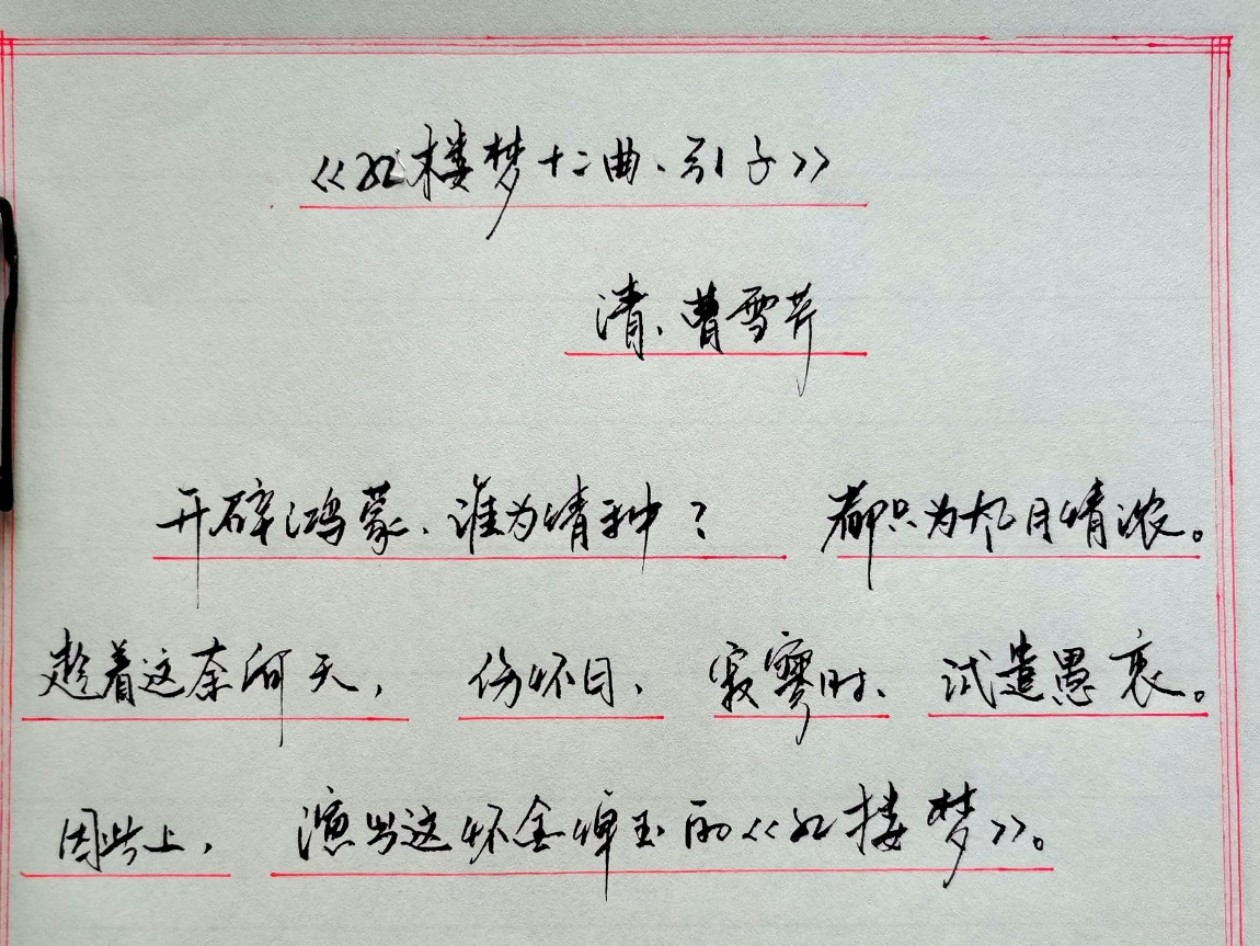 《红楼梦十二曲、引子》
清、曹雪芹
开辟鸿蒙、谁为情种？ 都只为风月情浓。
趁着这奈何天， 伤怀日、 寂寥时、 试遣愚衷。
因此上， 演出这怀金悼玉的《红楼梦》。